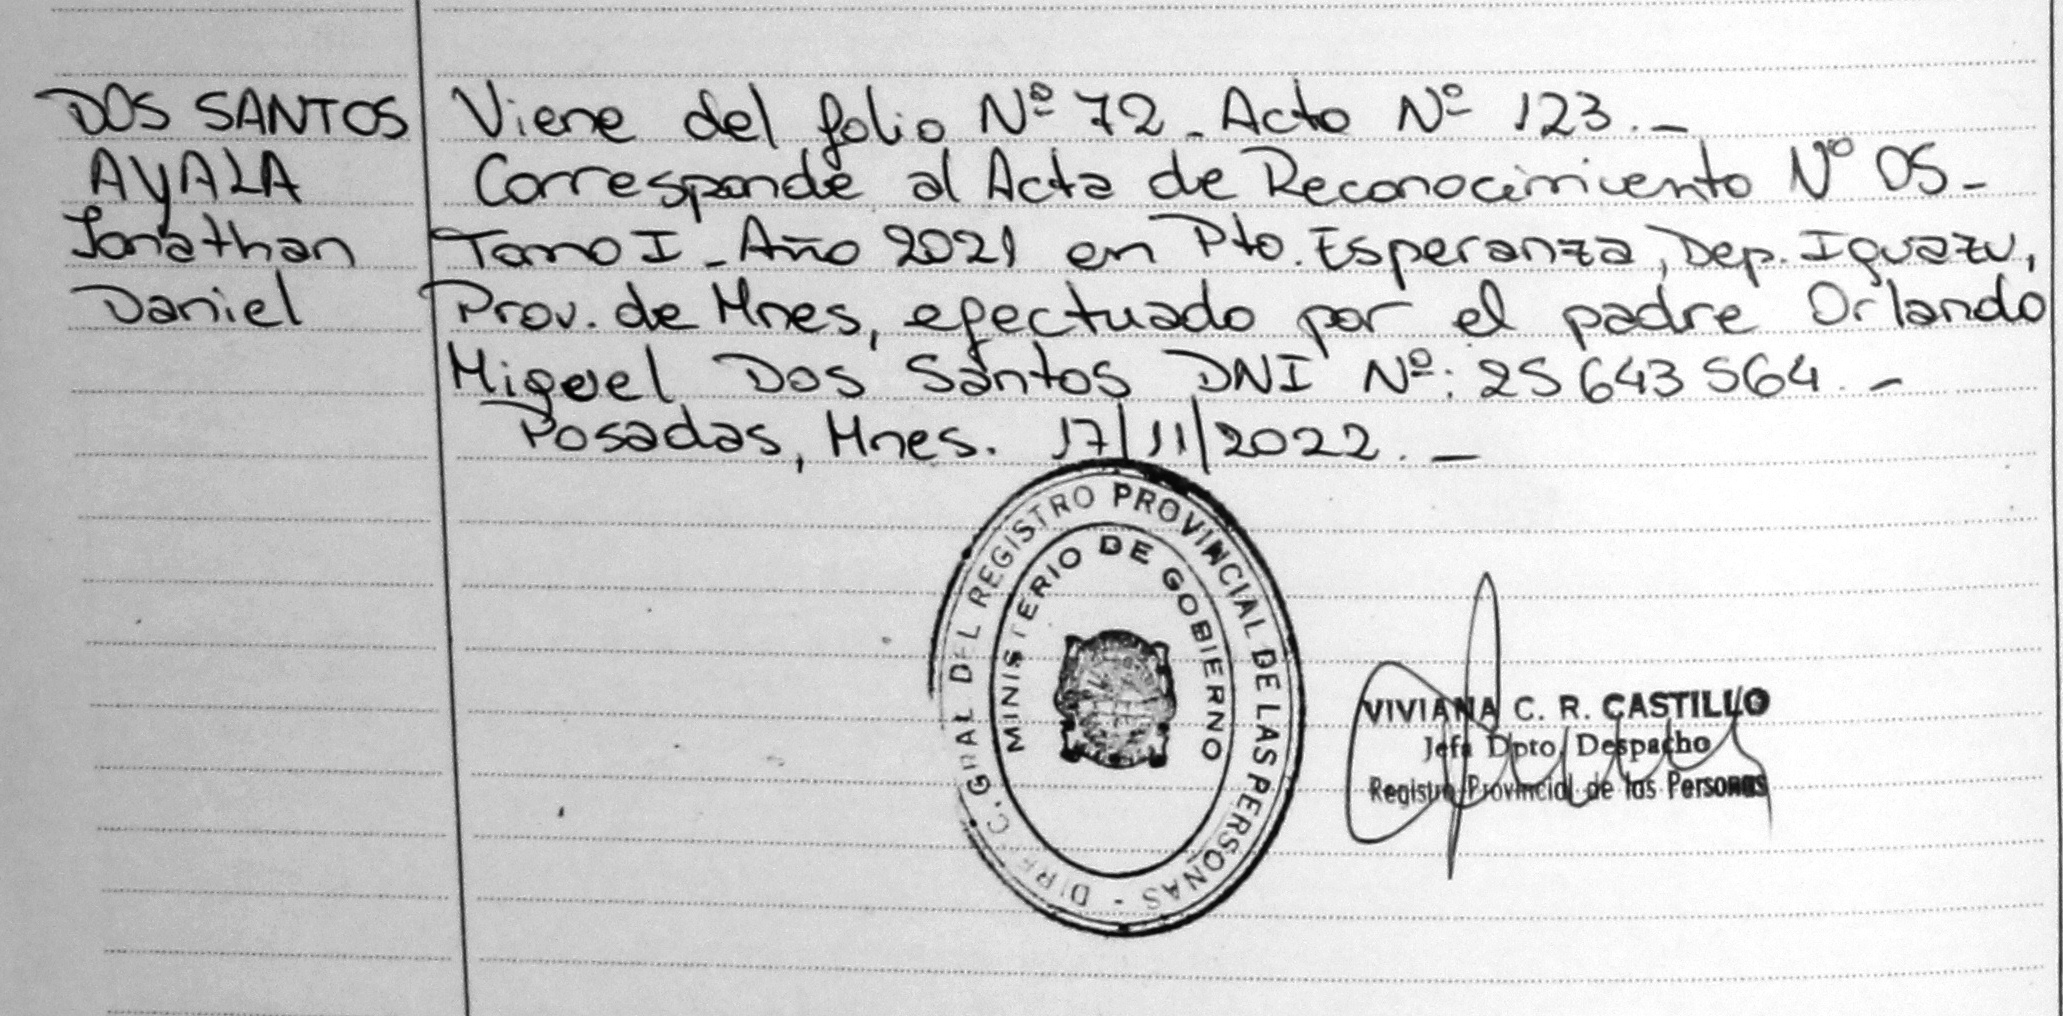 DOS SANTOS
AYALA
Jonathan
Daniel
Viene del folio Nº 72 - Acta Nº 123. -
Corresponde al Acta de Reconocimiento Nº 05 -
Tomo I - Año 2021 en Pto. Esperanza, Dep. Iguazu,
Prov. de Mnes, efectuado por el padre Orlando
Miguel Dos Santos DNI Nº: 25 643 564. -
Posadas, Mnes. 17/11/2022. -
DIREC. GRAL DEL REGISTRO PROVINCIAL DE LAS PERSONAS -
MINISTERIO DE GOBIERNO
VIVIANA C. R. CASTILLO
Jefa Dpto. Despacho
Registro Provincial de las Personas